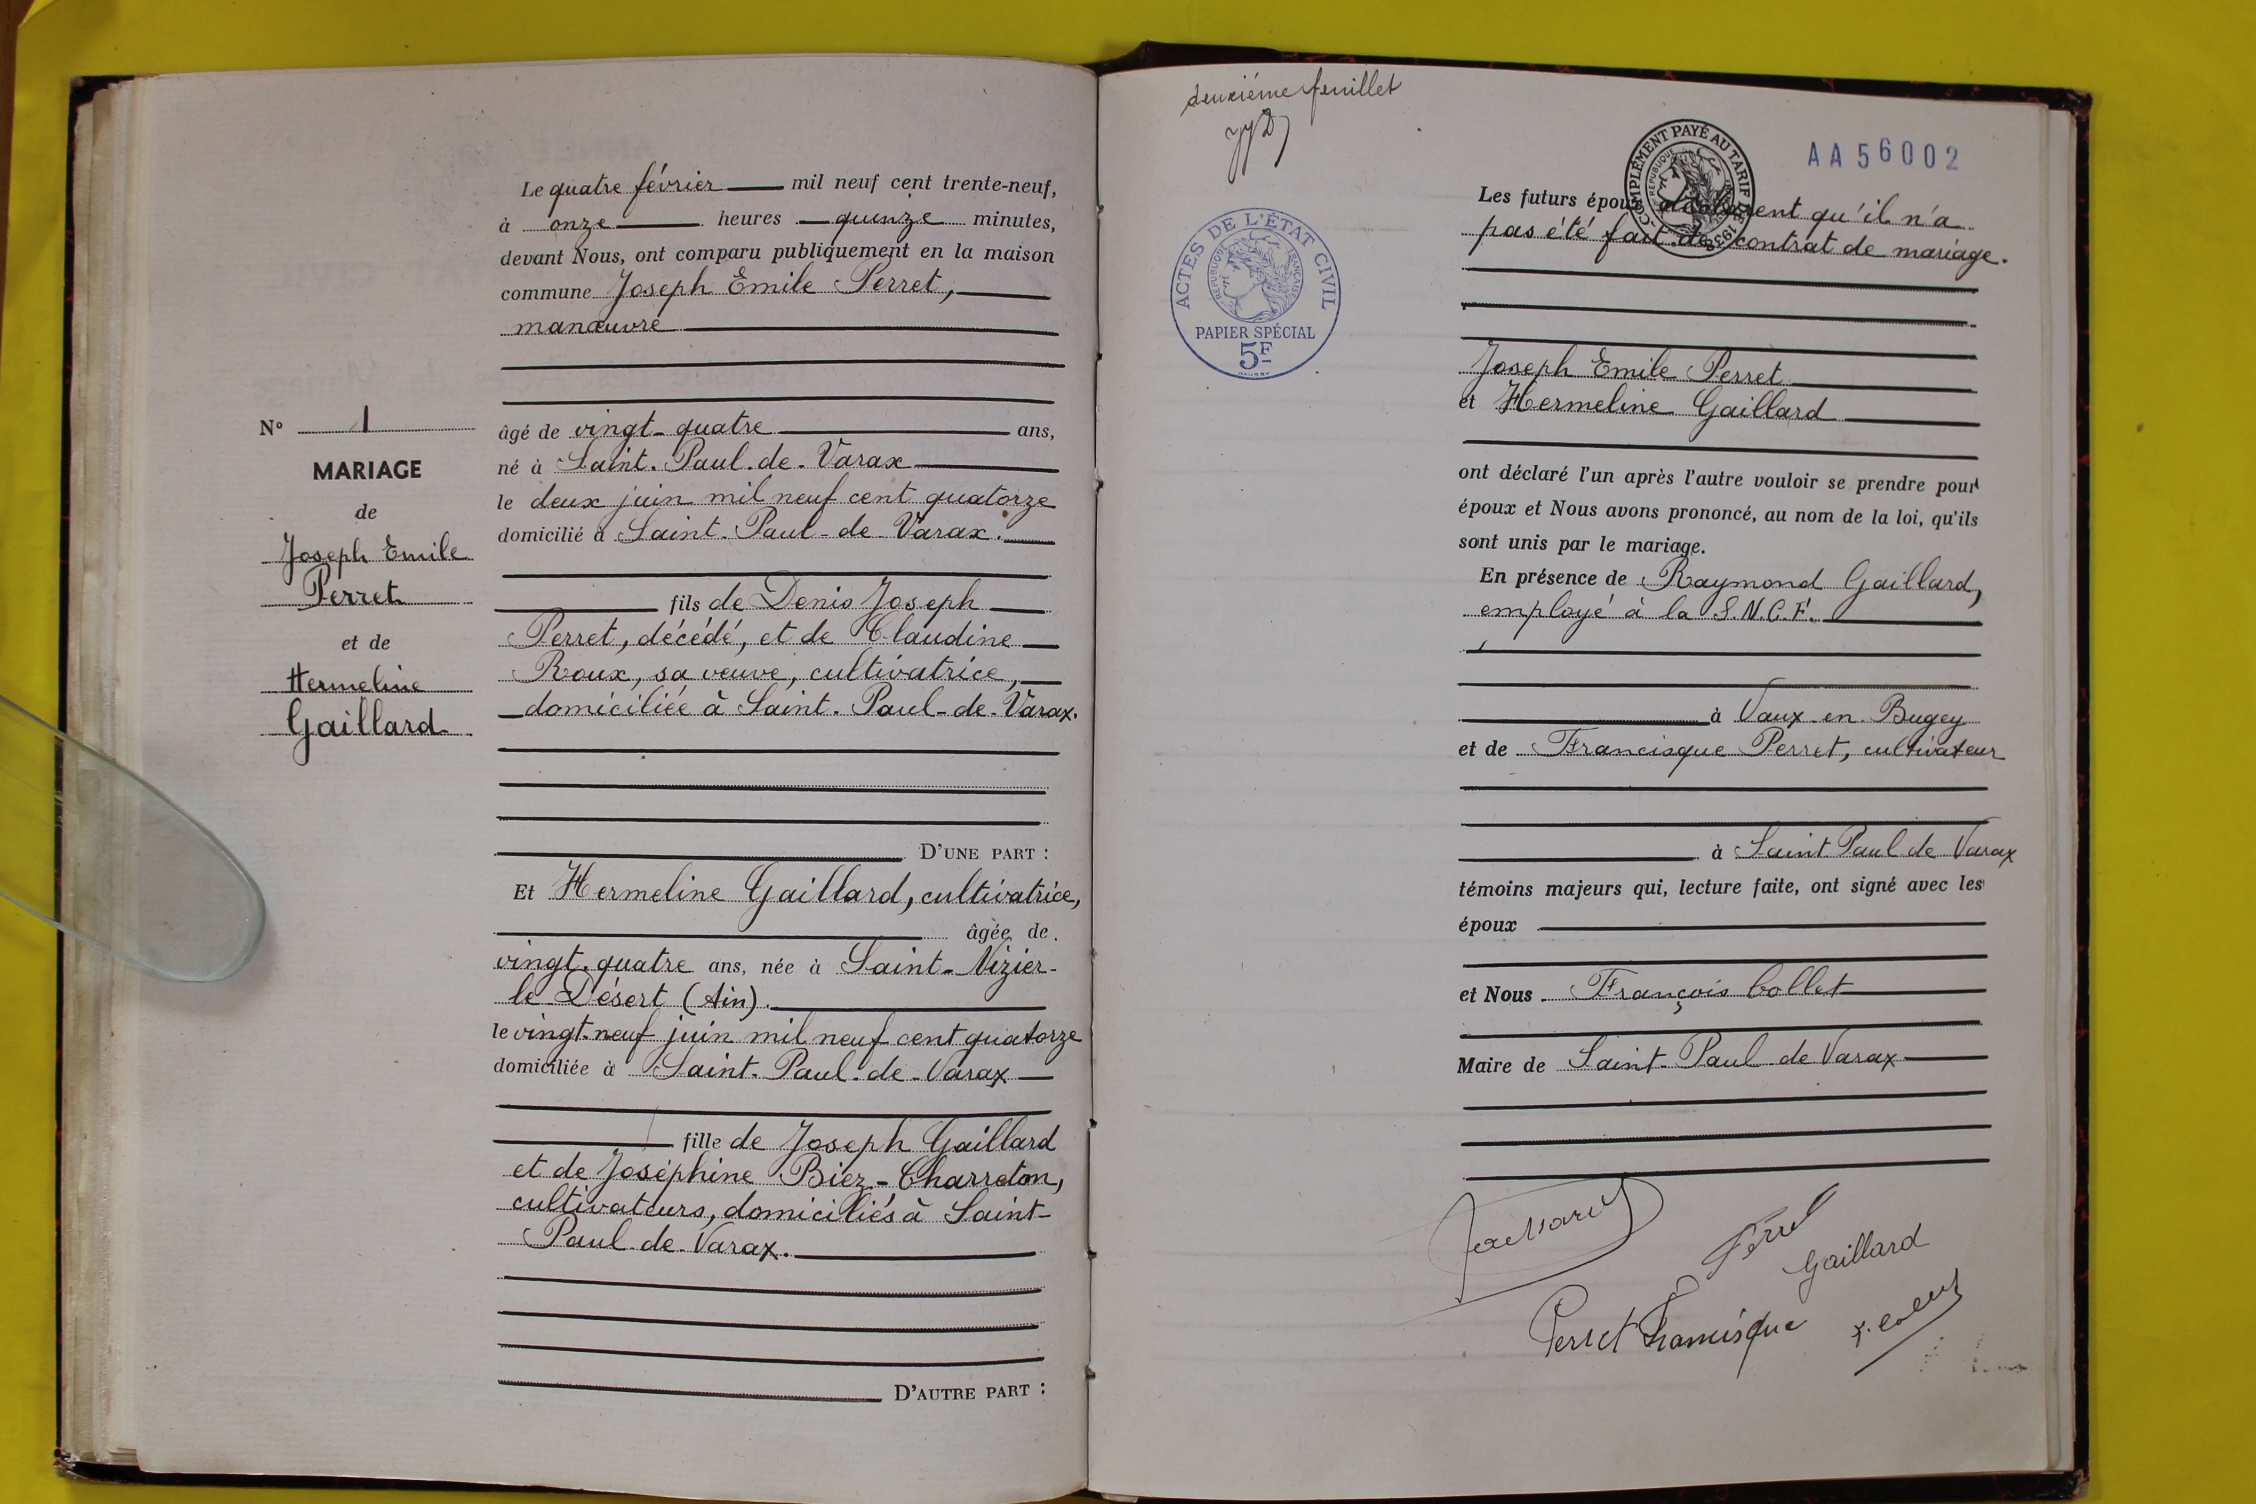 N° 1
MARIAGE
de
Joseph Emile
Perret
et de
Hermeline
Gaillard
Le quatre février mil neuf cent trente-neuf,
à onze heures quinze minutes,
devant Nous, ont comparu publiquement en la maison
commune Joseph Emile Perret,
manœuvre
âgé de vingt-quatre ans,
né à Saint-Paul-de-Varax
le deux juin mil neuf cent quatorze
domicilié à Saint-Paul-de-Varax.
fils de Denis Joseph
Perret, décédé, et de Claudine
Roux, sa veuve, cultivatrice,
domiciliée à Saint-Paul-de-Varax.
D'UNE PART :
Et Hermeline Gaillard, cultivatrice,
âgée de
vingt-quatre ans, née à Saint-Nizier-
le-Désert (Ain).
le vingt-neuf juin mil neuf cent quatorze
domiciliée à Saint-Paul-de-Varax
fille de Joseph Gaillard
et de Joséphine Biez-Charreton,
cultivateurs, domiciliés à Saint-
Paul-de-Varax.
D'AUTRE PART :
deuxiéme feuillet
ACTES DE L'ÉTAT CIVIL
RÉPUBLIQUE FRANÇAISE
PAPIER SPÉCIAL
5F
COMPLÉMENT PAYÉ AU TARIF DE 1938
AA56002
Les futurs époux déclarent qu'il n'a
pas été fait de contrat de mariage.
Joseph Emile Perret
et Hermeline Gaillard
ont déclaré l'un après l'autre vouloir se prendre pour
époux et Nous avons prononcé, au nom de la loi, qu'ils
sont unis par le mariage.
En présence de Raymond Gaillard,
employé à la S.N.C.F.
à Vaux-en-Bugey
et de Francisque Perret, cultivateur
à Saint Paul de Varax
témoins majeurs qui, lecture faite, ont signé avec les
époux
et Nous François Collet
Maire de Saint-Paul-de Varax
Perret
Gaillard
Perret Francisque